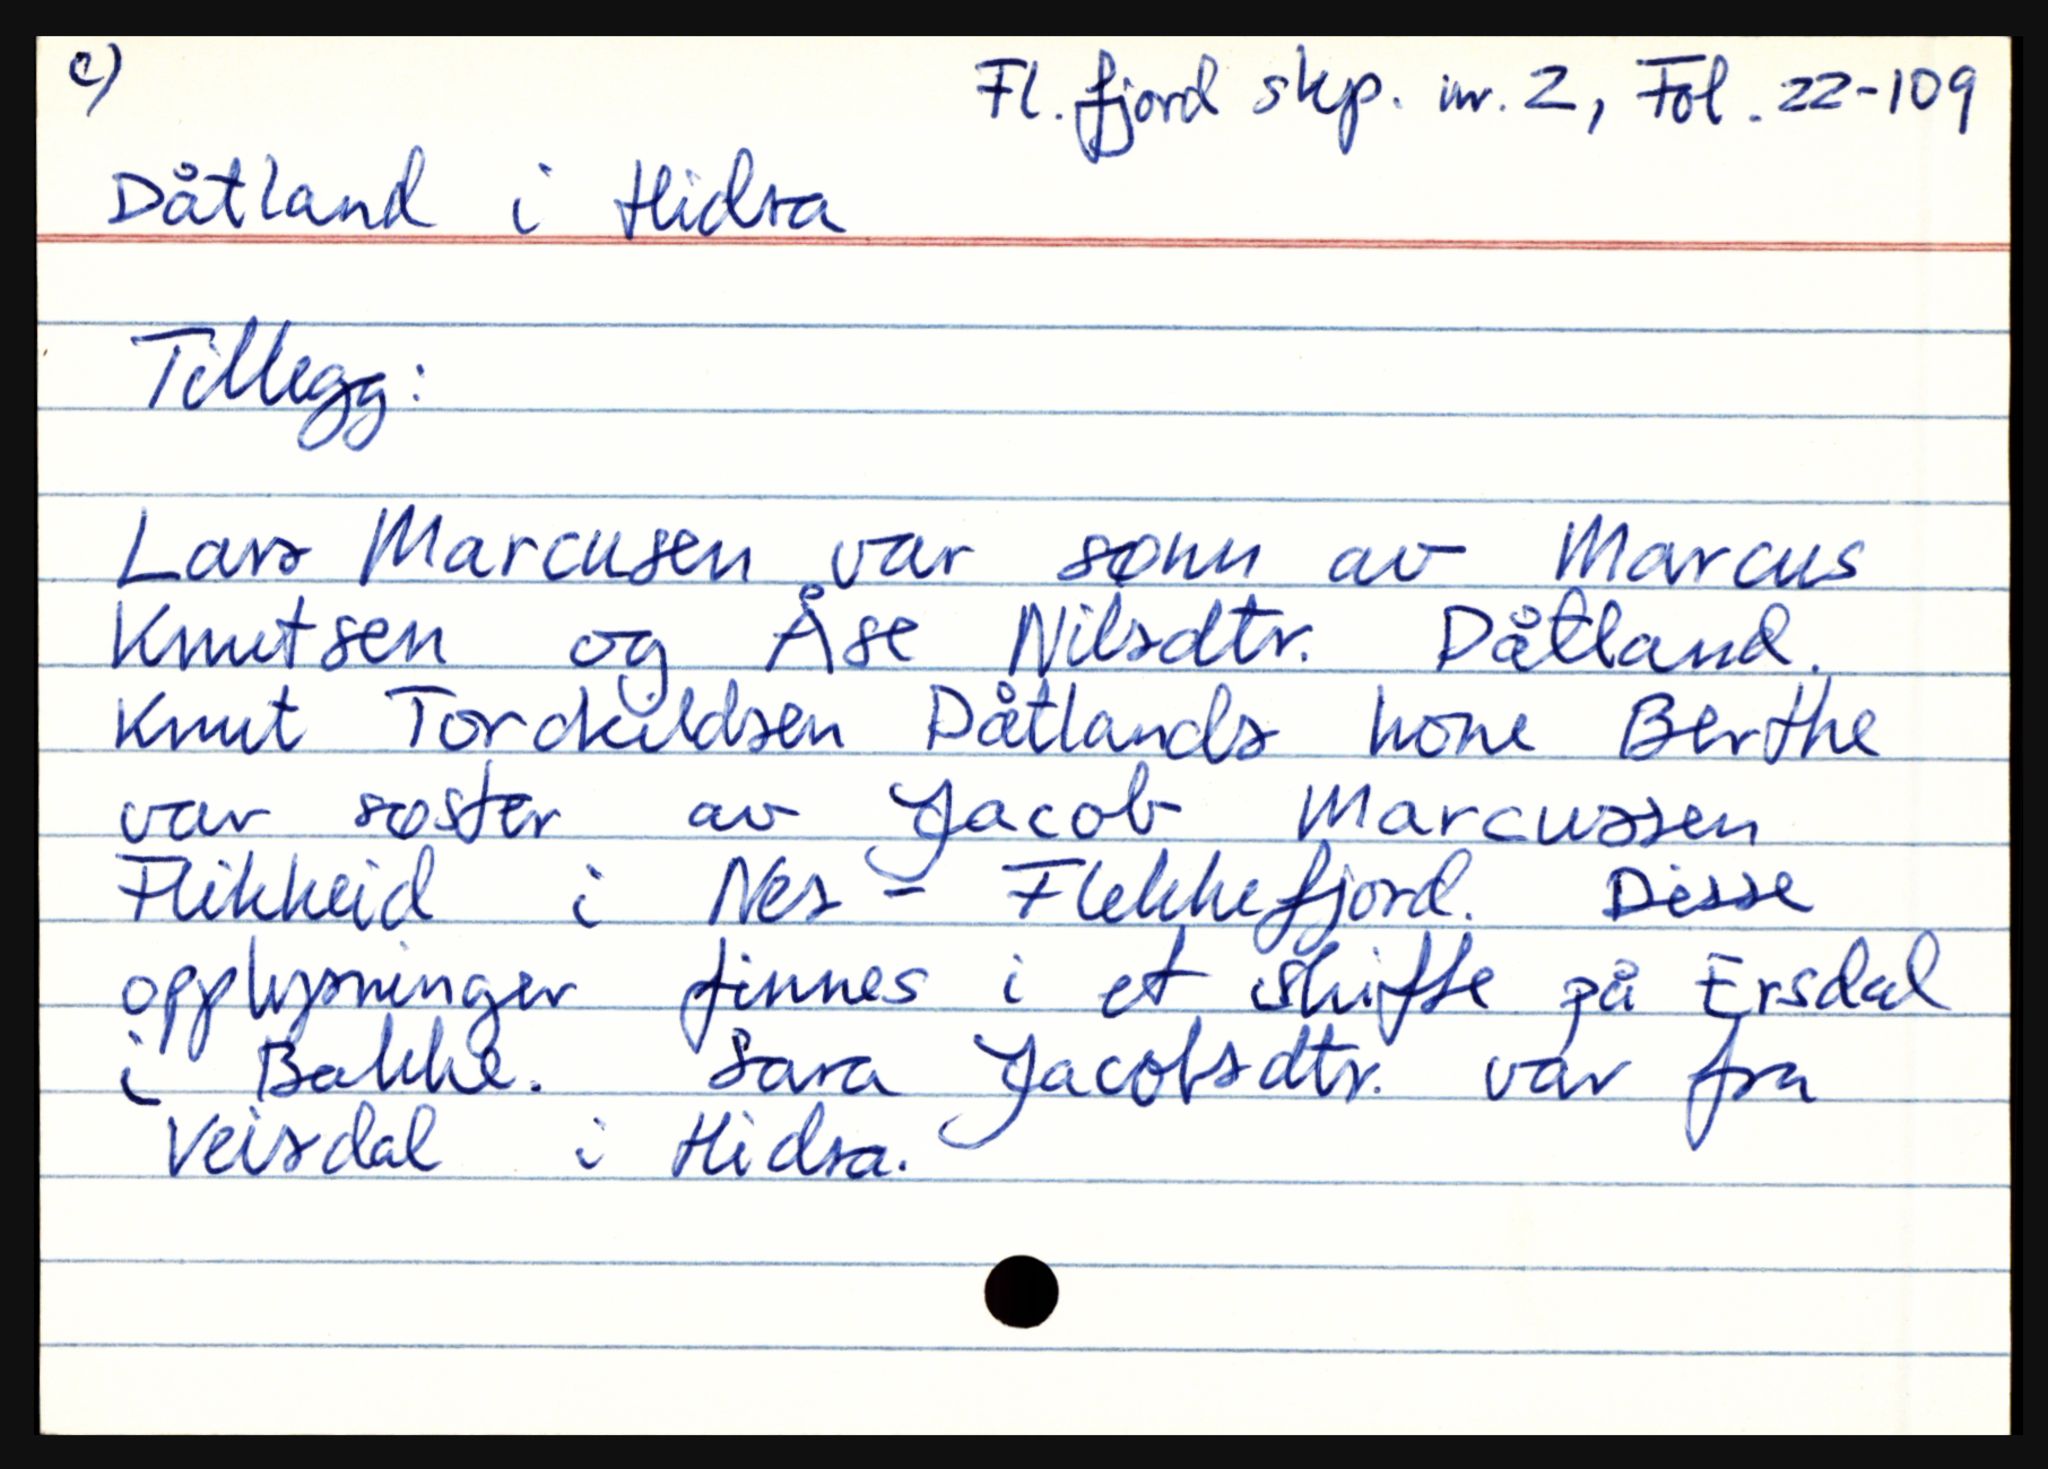 c)
Fl.fjord skp. nr. 2, Fol. 22-109
Dåtland i Hidra
Tillegg:
Lars Marcusen var sønn av Marcus
Knutsen og Åse Nilsdtr. Dåtland.
Knut Tordkildsen Dåtlands kone Berthe
var søster av Jacob Marcussen
Flikkeid i Nes - Flekkefjord. Disse
opplysninger finnes i et skifte på Ersdal
i Bakke. Sara Jacobsdtr. var fra
Veisdal i Hidra.